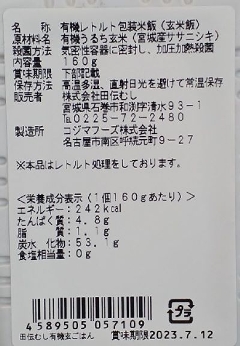 名　　称　有機レトルト包装米飯（玄米飯）
原材料名　有機うるち玄米（宮城産ササニシキ）
殺菌方法　気密性容器に密封し、加圧加熱殺菌
内容量　160g
賞味期限　下部記載
保存方法　高温多湿、直射日光を避けて常温保存
販売者　株式会社田伝むし
宮城県石巻市和渕字清水93-1
℡0225-72-2480
製造所　コジマフーズ株式会社
名古屋市南区呼続元町9-27
※本品はレトルト処理をしております。
<栄養成分表示（1個160gあたり）>
エネルギー：242kcal
たんぱく質：4.8g
脂　　質：1.1g
炭水 化物：53.1g
食塩相当量：0g
4589505057109
プラ
田伝むし有機玄ごはん　賞味期限2023.7.12